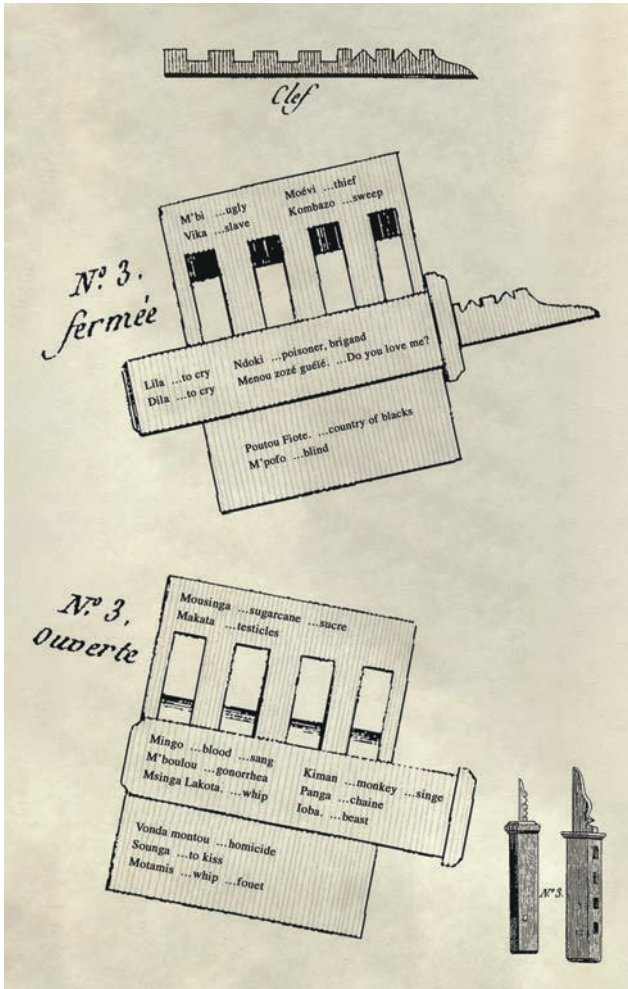 Clef
N.º 3.
fermée
M'bi ...ugly
Vika ...slave
Moévi ...thief
Kombazo ...sweep
Lila ...to cry
Dila ...to cry
Ndoki ...poisoner, brigand
Menou zozé guéié. ...Do you love me?
Poutou Fiote. ...country of blacks
M'pofo ...blind
N.º 3,
ouverte
Mousinga ...sugarcane ...sucre
Makata ...testicles
Mingo ...blood ...sang
M'boulou ...gonorrhea
Msinga Lakota. ...whip
Kiman ...monkey ...singe
Panga ...chaine
Ioba. ...beast
Vonda montou ...homicide
Sounga ...to kiss
Motamis ...whip ...fouet
N.º 3.